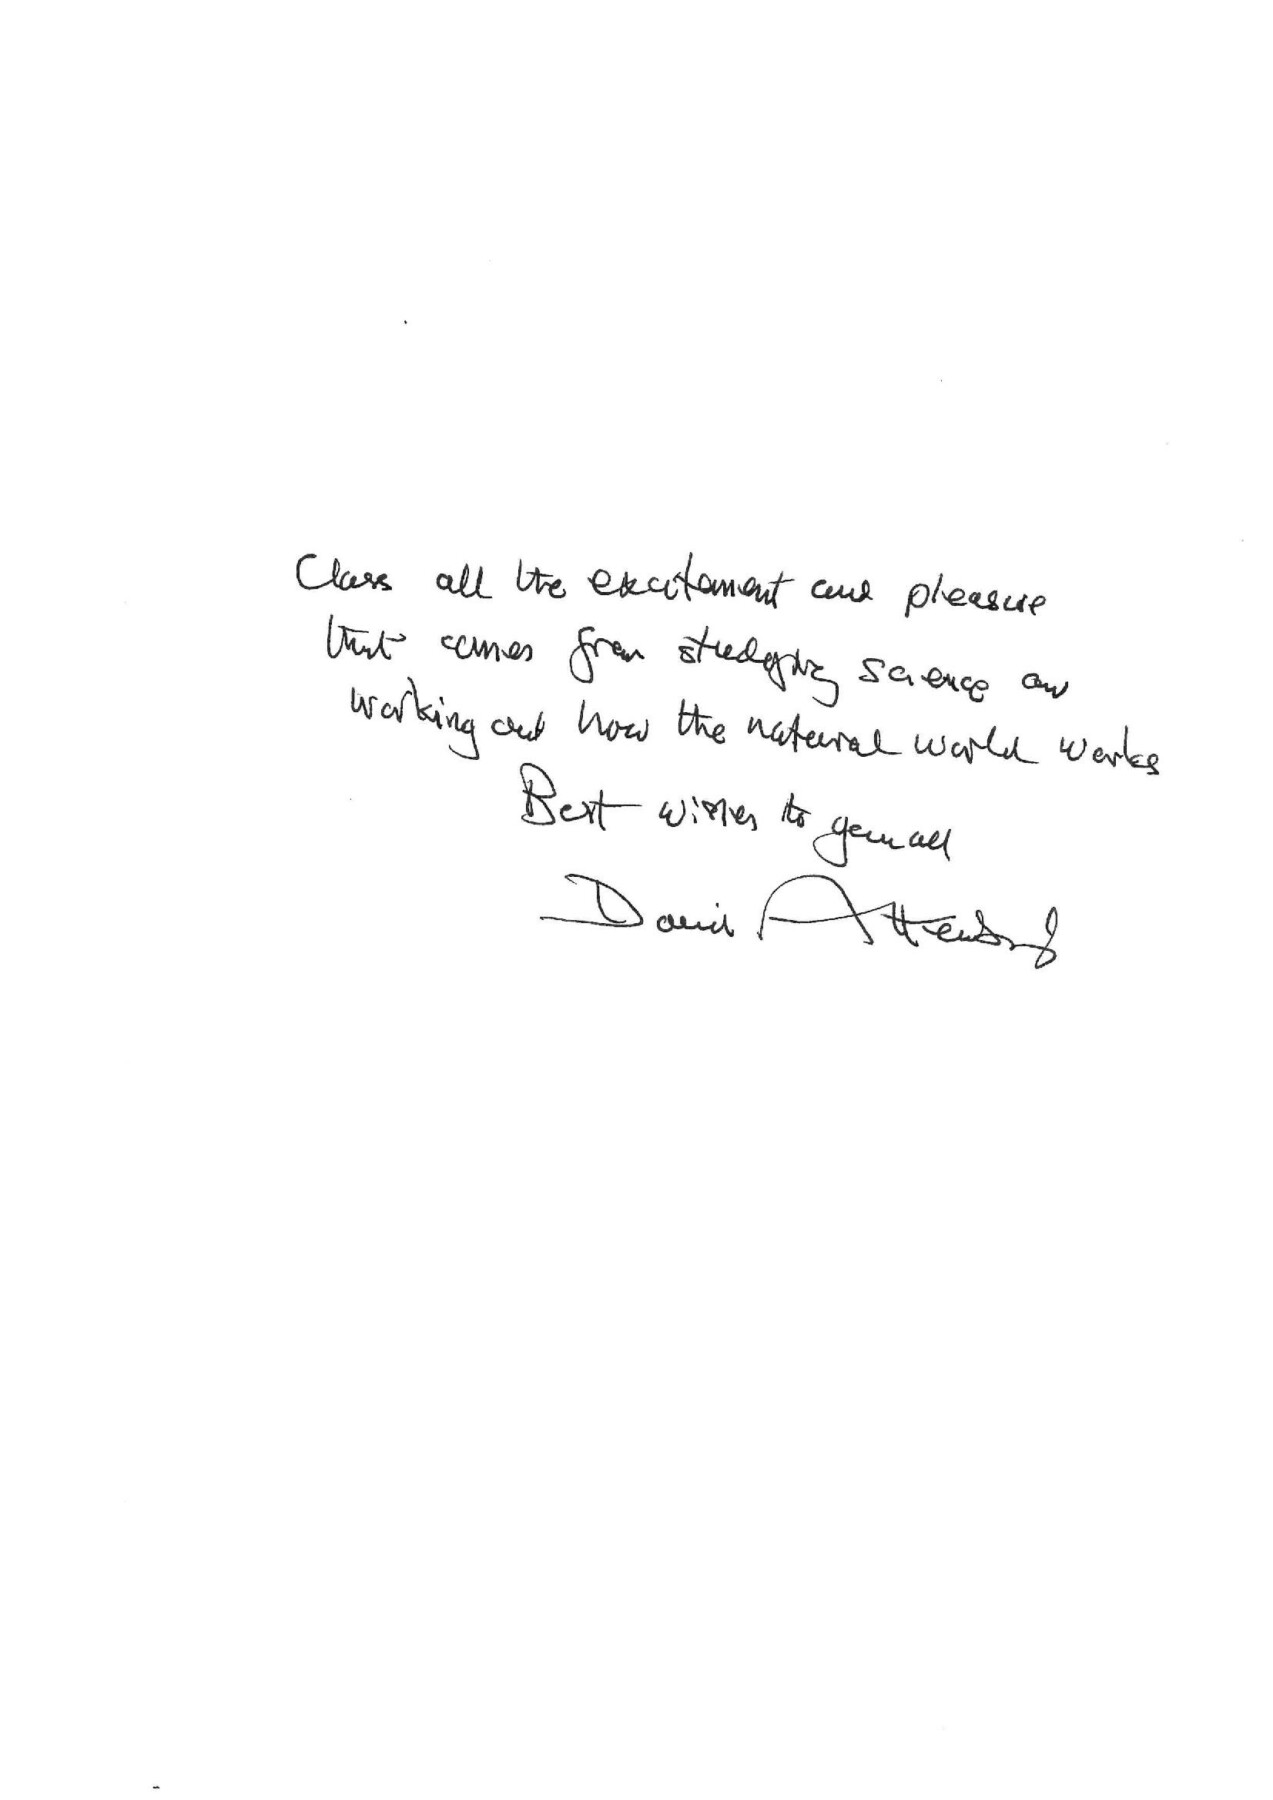 Class all the excitement and pleasure
that comes from studying science and
working out how the natural world works
Best wishes to you all
David Attenborough